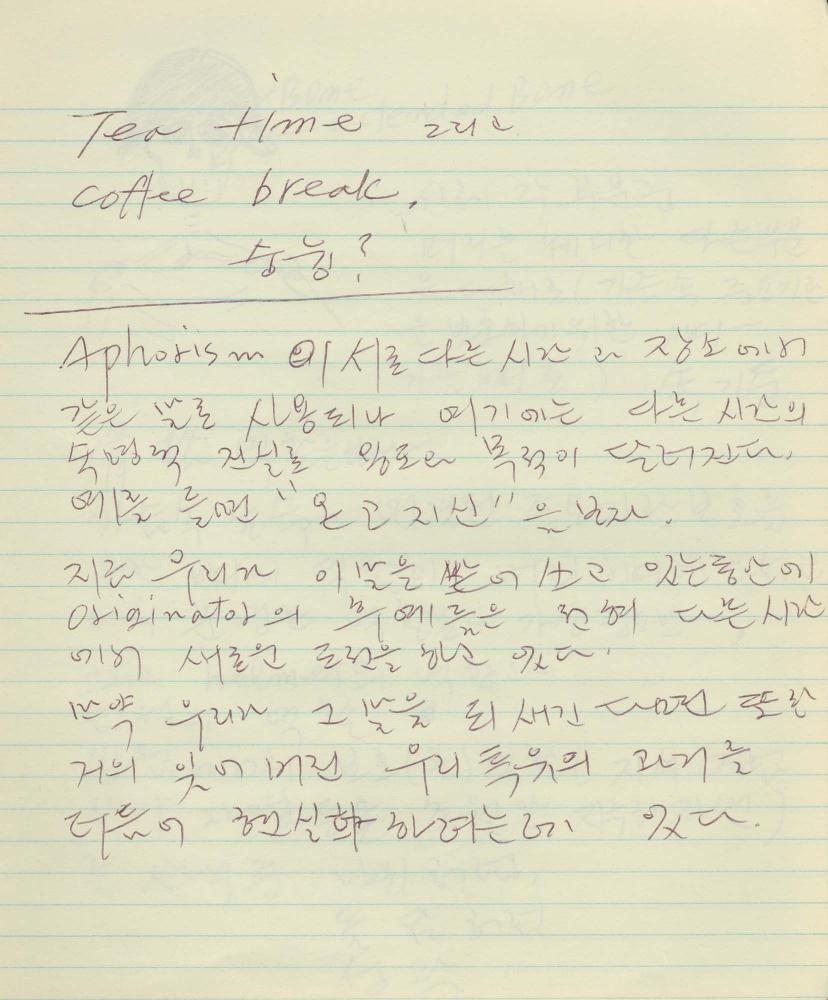 Tea time 그리고
coffee break,
숭늉?
Aphorism 이 서로 다른 시간과 장소에서
같은 말로 사용되나 여기에는 다른 시간의
숙명적 진실로 용도와 목적이 달러진다.
예를 들면 "온고지신" 을 보자.
지금 우리가 이 말을 쓰고 있는동안에
Originator의 후예들은 전혀 다른시간
에서 새로운 도전을 하고 있다.
만약 우리가 그 말을 되새긴다면 또한
거의 잊어버린 우리 특유의 과거를
더듬어 현실화 하려는데 있다.